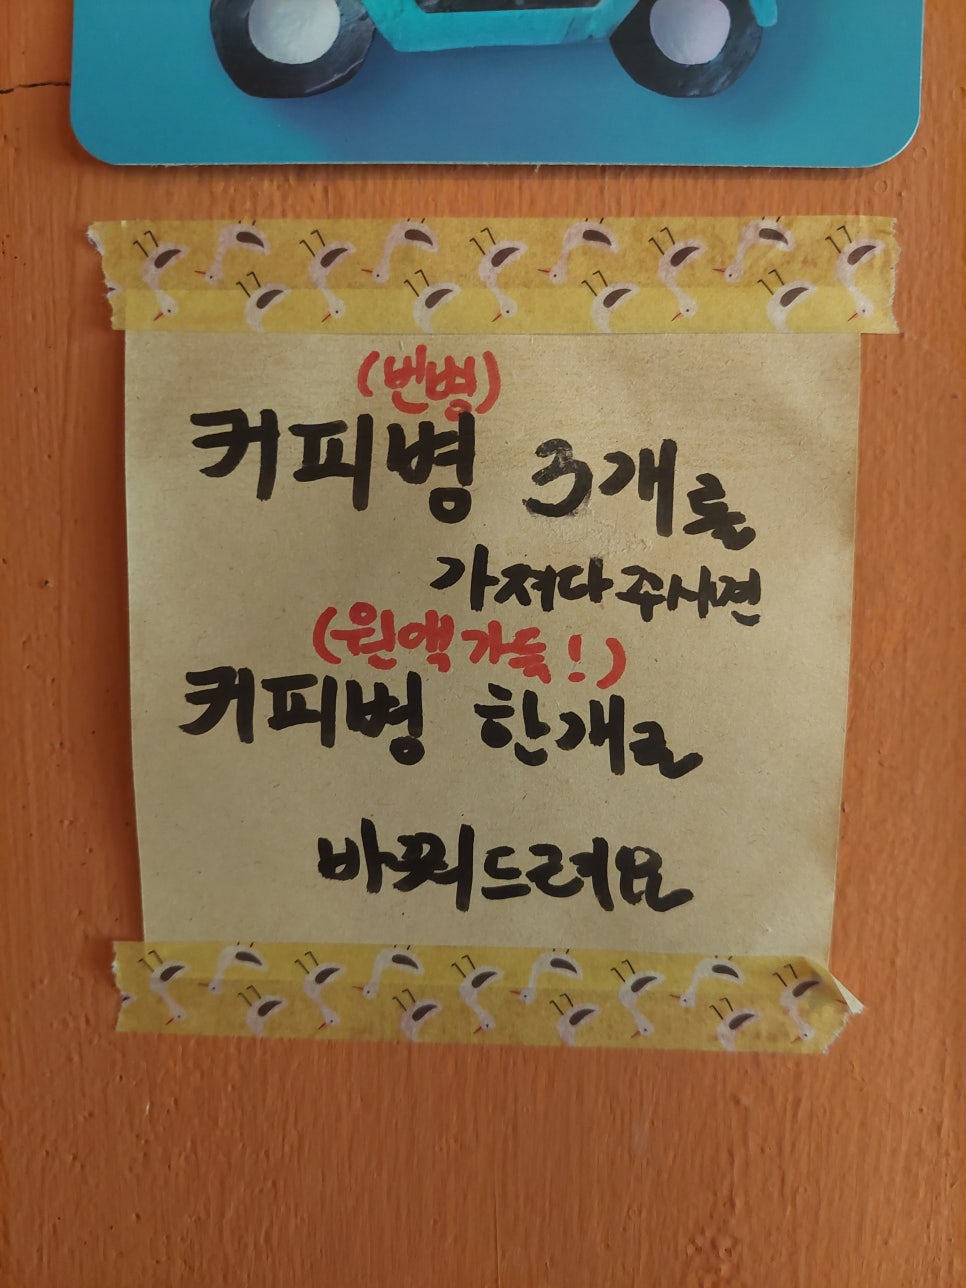 (빈병)
커피병 3개를
가져다주시면
(원액가득!)
커피병 한개로
바꿔드려요